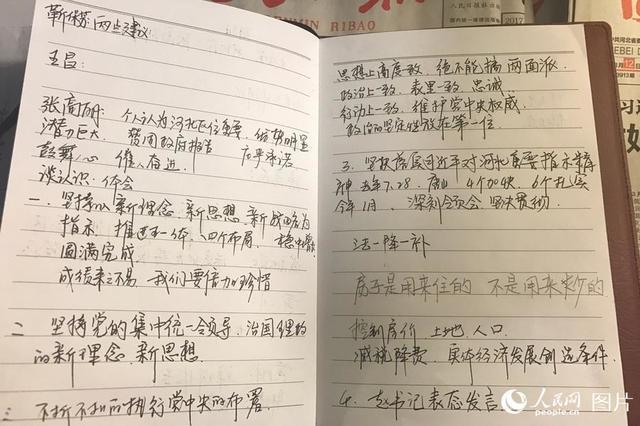 人民日报社出版
国内统一连续出版
2017
RIBAO
两点建议:
王昌:
张高丽: 个人认为河北地位重要, 优势明显
潜力巨大 赞同政府报告 庄严承诺
鼓舞人心 催人奋进
谈认识、体会
一、坚持以新理念 新思想 新战略为
指示 推进五一体、四个布局、稳中
圆满完成
成绩来之不易 我们要倍加珍惜
二 坚持党的集中统一领导、治国理政
的新理念 新思想
三 不折不扣的执行党中央的布署.
思想上高度一致, 绝不能搞两面派
政治上一致, 表里一致, 忠诚
行动上一致, 维护党中央权威
政治的坚定性放在第一位
3. 坚持落实习近平对河北重要指示精
神 去年7.28, 唐山 4个加快, 6个扎实
今年1月 深刻领会 坚决贯彻
去一降一补
房子是用来住的 不是用来炒的.
控制房价 土地、人口
减税降费, 实体经济发展创造条件.
4. 赵书记表态发言
人民网 图片
people.cn